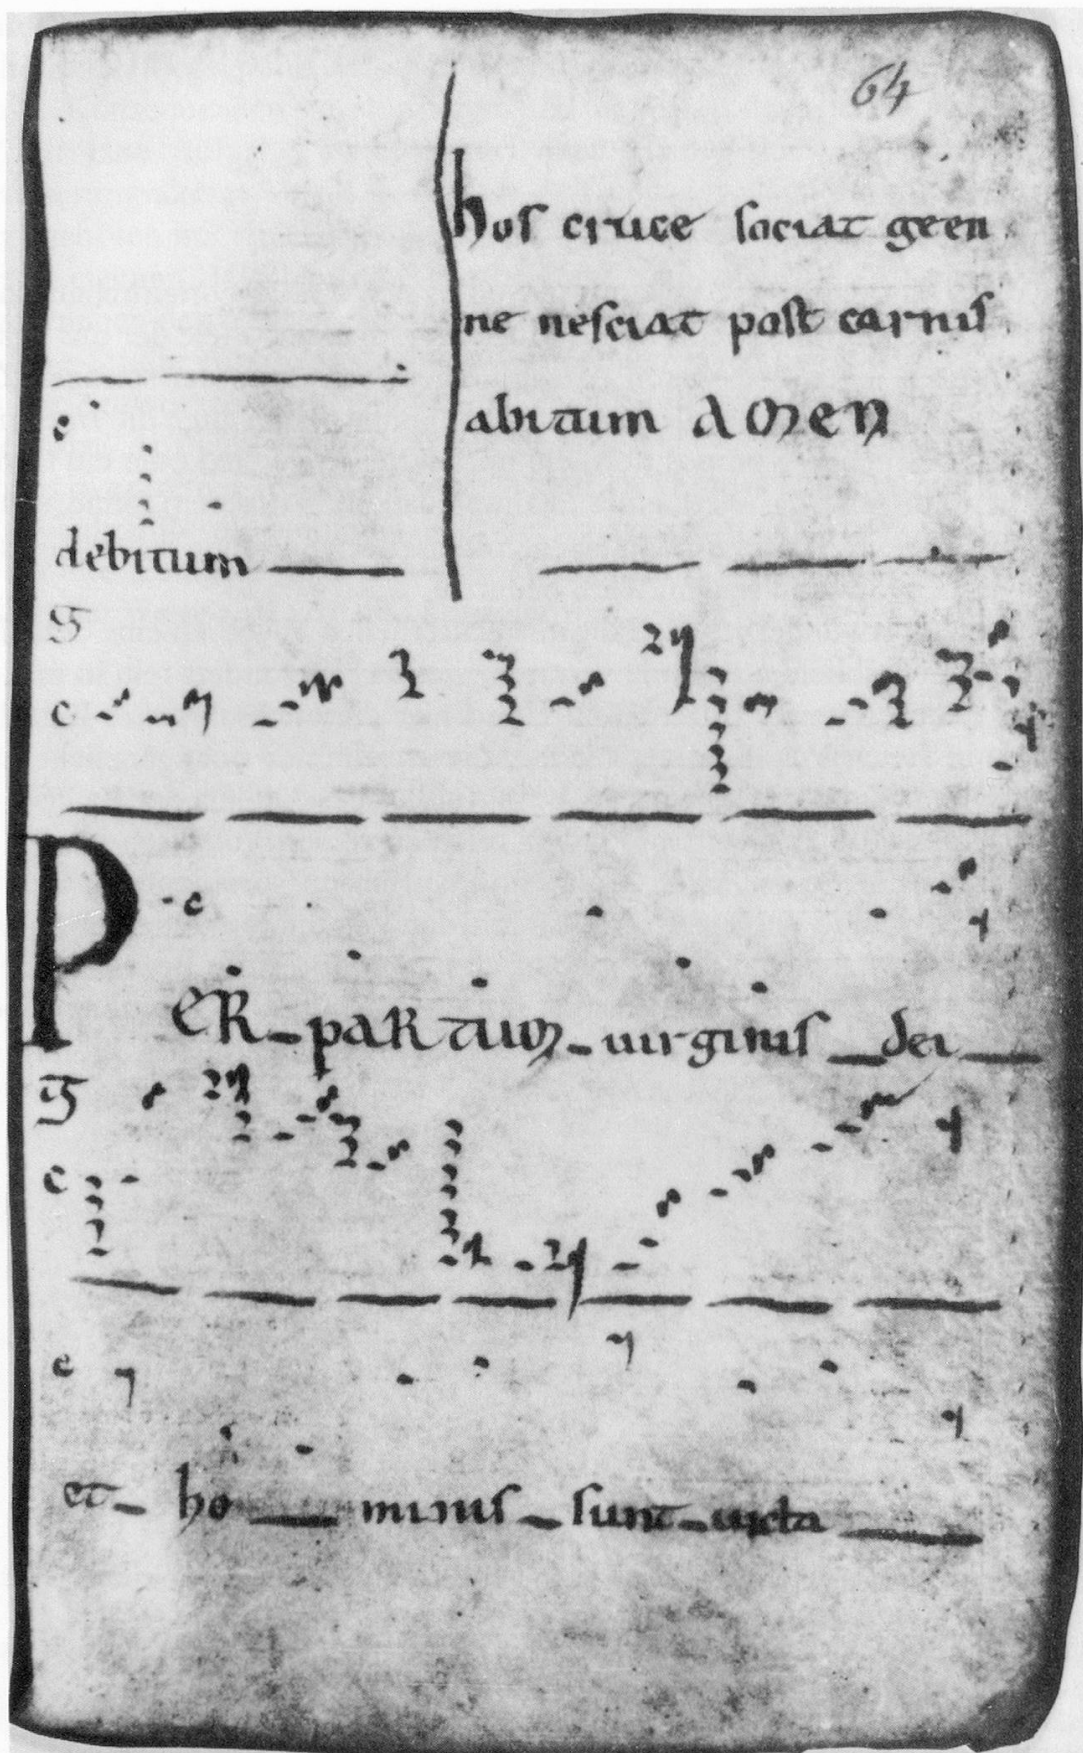 64
hos cruce sociat geen
ne nesciat post carnis
abitum AMEN
e
debitum
G
c
P c
ER partum virginis dei
G
c
e
et ho minis sunt iucta